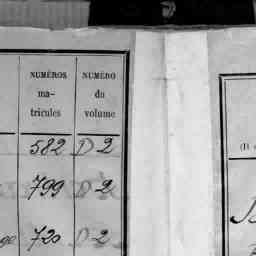 NUMÉROS NUMÉRO
ma- du
tricules volume
582 D 2
799 D 2
720 D 2